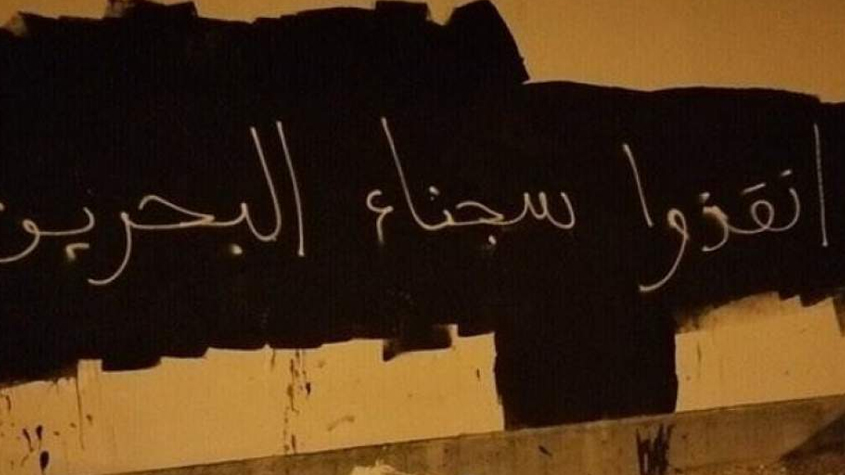 انقذوا سجناء البحرين